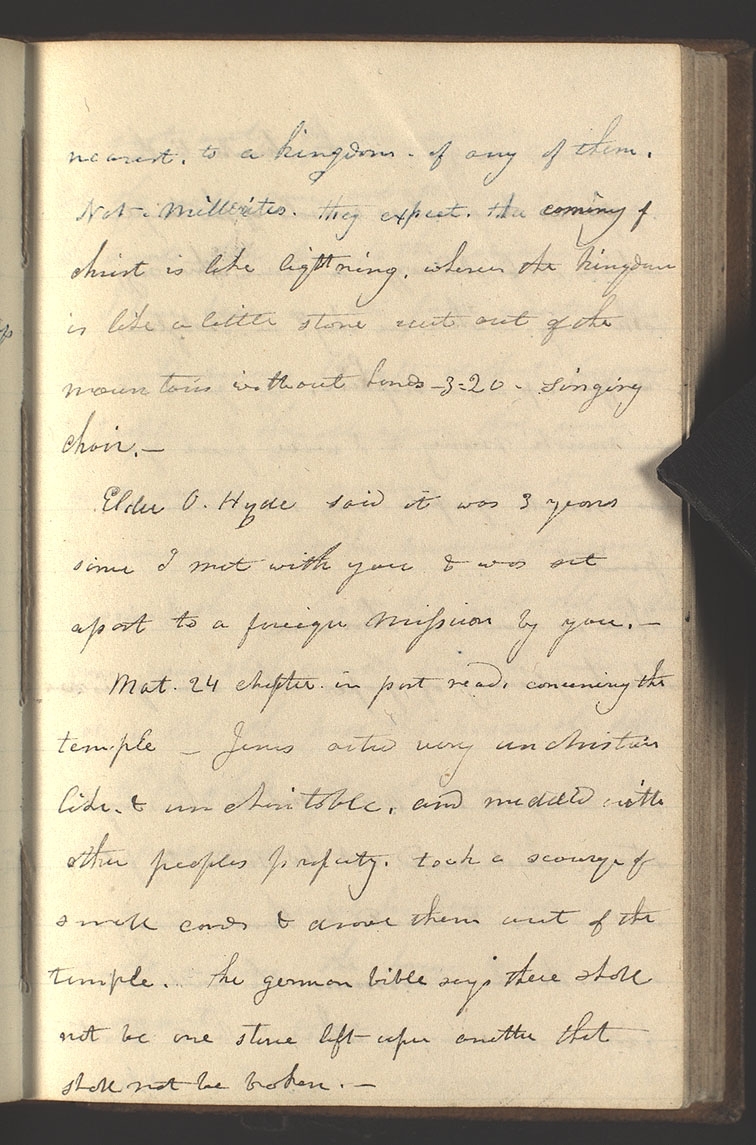 nearest. to a kingdom. of any of them.
Not. Millerites. they expect. the coming of
christ is like lightning. wheras the kingdom
is like a little stone cut out of the
mountain without hands - 3=20 - singing
choir. -
Elder O. Hyde said it was 3 years
since I met with you & was set
apart to a foreign mission by you. -
Mat. 24 chapter. in part read. concerning the
temple - Jesus acted very unchristian
like. & uncharitable. and meddled with
other peoples property. took a scourge of
small cords & drove them out of the
temple. . The german bible says there shall
not be one stone left upon another that
shall not be broken. -